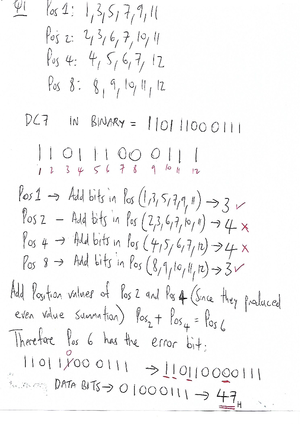 Q1 Pos 1: 1,3,5,7,9,11
Pos 2: 2,3,6,7,10,11
Pos 4: 4,5,6,7,12
Pos 8: 8,9,10,11,12
DC7 IN BINARY = 110111000111
1 1 0 1 1 1 0 0 0 1 1 1
1 2 3 4 5 6 7 8 9 10 11 12
Pos 1 → Add bits in Pos (1,3,5,7,9,11) → 3 ✓
Pos 2 – Add bits in Pos (2,3,6,7,10,11) → 4 ✗
Pos 4 → Add bits in Pos (4,5,6,7,12) → 4 ✗
Pos 8 → Add bits in Pos (8,9,10,11,12) → 3 ✓
Add Position values of Pos 2 and Pos 4 (Since they produced
even value summation) Pos2 + Pos4 = Pos 6
Therefore Pos 6 has the error bit:
0
110111000111 → 110110000111
DATA BITS → 01000111 → 47H